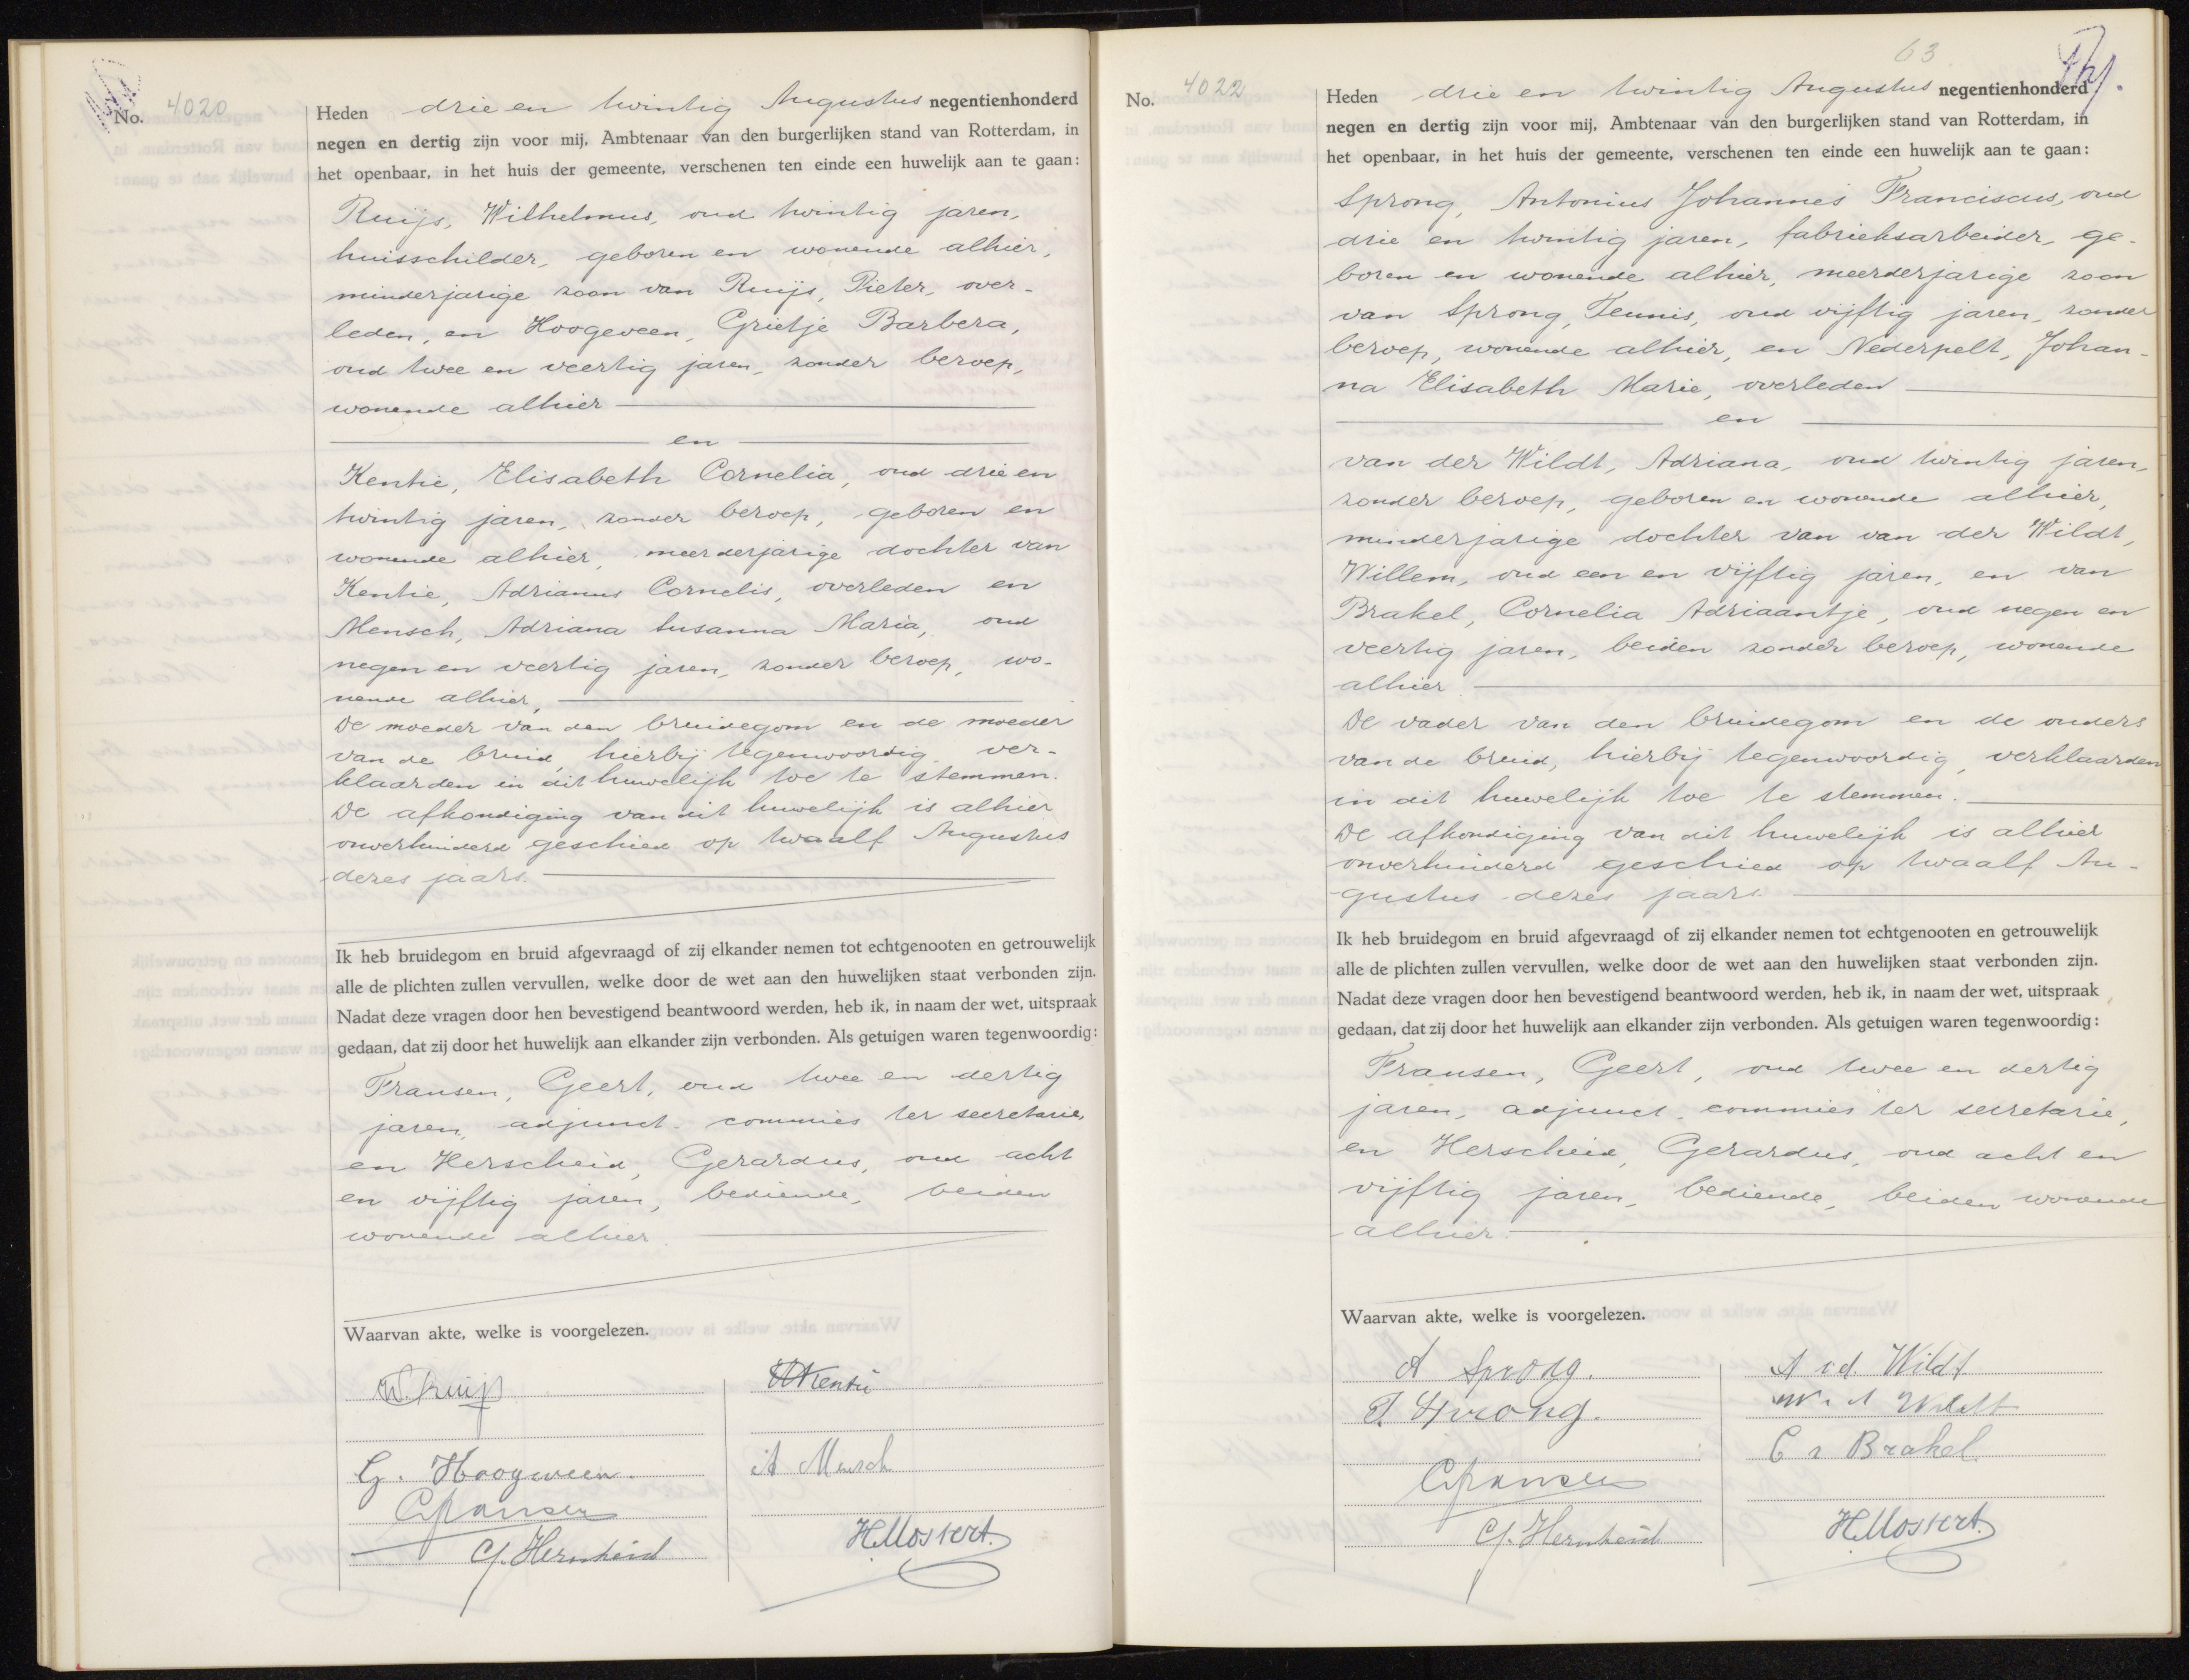 No. 4020
Heden drie en twintig Augustus negentienhonderd
negen en dertig zijn voor mij, Ambtenaar van den burgerlijken stand van Rotterdam, in
het openbaar, in het huis der gemeente, verschenen ten einde een huwelijk aan te gaan:
Ruijs, Wilhelmus, oud twintig jaren,
huisschilder, geboren en wonende alhier,
minderjarige zoon van Ruijs, Pieter, over-
leden, en Hoogeveen, Grietje Barbera,
oud twee en veertig jaren, zonder beroep,
wonende alhier
en
Kentie, Elisabeth Cornelia, oud drie en
twintig jaren, zonder beroep, geboren en
wonende alhier, meerderjarige dochter van
Kentie, Adrianus Cornelis, overleden en
Mensch, Adriana Susanna Maria, oud
negen en veertig jaren, zonder beroep, wo-
nende alhier,
De moeder van den bruidegom en de moeder
van de bruid, hierbij tegenwoordig ver-
klaarden in dit huwelijk toe te stemmen.
De afkondiging van dit huwelijk is alhier
onverhinderd geschied op twaalf Augustus
dezes jaars.
Ik heb bruidegom en bruid afgevraagd of zij elkander nemen tot echtgenooten en getrouwelijk
alle de plichten zullen vervullen, welke door de wet aan den huwelijken staat verbonden zijn.
Nadat deze vragen door hen bevestigend beantwoord werden, heb ik, in naam der wet, uitspraak
gedaan, dat zij door het huwelijk aan elkander zijn verbonden. Als getuigen waren tegenwoordig:
Fransen, Geert, oud twee en dertig
jaren, adjunct-commies ter secretarie,
en Herscheid, Gerardus, oud acht
en vijftig jaren, bediende, beiden
wonende alhier.
Waarvan akte, welke is voorgelezen.
W. Ruijs
Kentie
G. Hoogeveen.
A Mensch
GFransen
G. Herscheid
H. Mostert.
63
No. 4022
Heden drie en twintig Augustus negentienhonderd
negen en dertig zijn voor mij, Ambtenaar van den burgerlijken stand van Rotterdam, in
het openbaar, in het huis der gemeente, verschenen ten einde een huwelijk aan te gaan:
Sprong, Antonius Johannes Franciscus, oud
drie en twintig jaren, fabrieksarbeider, ge-
boren en wonende alhier, meerderjarige zoon
van Sprong, Teunis, oud vijftig jaren, zonder
beroep, wonende alhier, en Nederpelt, Johan-
na Elisabeth Marie, overleden
en
van der Wildt, Adriana, oud twintig jaren,
zonder beroep, geboren en wonende alhier,
minderjarige dochter van van der Wildt,
Willem, oud een en vijftig jaren, en van
Brakel, Cornelia Adriaantje, oud negen en
veertig jaren, beiden zonder beroep, wonende
alhier.
De vader van den bruidegom en de ouders
van de bruid, hierbij tegenwoordig, verklaarden
in dit huwelijk toe te stemmen.
De afkondiging van dit huwelijk is alhier
onverhinderd geschied op twaalf Au-
gustus dezes jaars.
Ik heb bruidegom en bruid afgevraagd of zij elkander nemen tot echtgenooten en getrouwelijk
alle de plichten zullen vervullen, welke door de wet aan den huwelijken staat verbonden zijn.
Nadat deze vragen door hen bevestigend beantwoord werden, heb ik, in naam der wet, uitspraak
gedaan, dat zij door het huwelijk aan elkander zijn verbonden. Als getuigen waren tegenwoordig:
Fransen, Geert, oud twee en dertig
jaren, adjunct-commies ter secretarie,
en Herscheid, Gerardus, oud acht en
vijftig jaren, bediende, beiden wonende
alhier.
Waarvan akte, welke is voorgelezen.
A Sprong.
A v.d. Wildt
T. Sprong.
W. v d Wildt
C v Brakel
GFransen
G. Herscheid
H. Mostert.